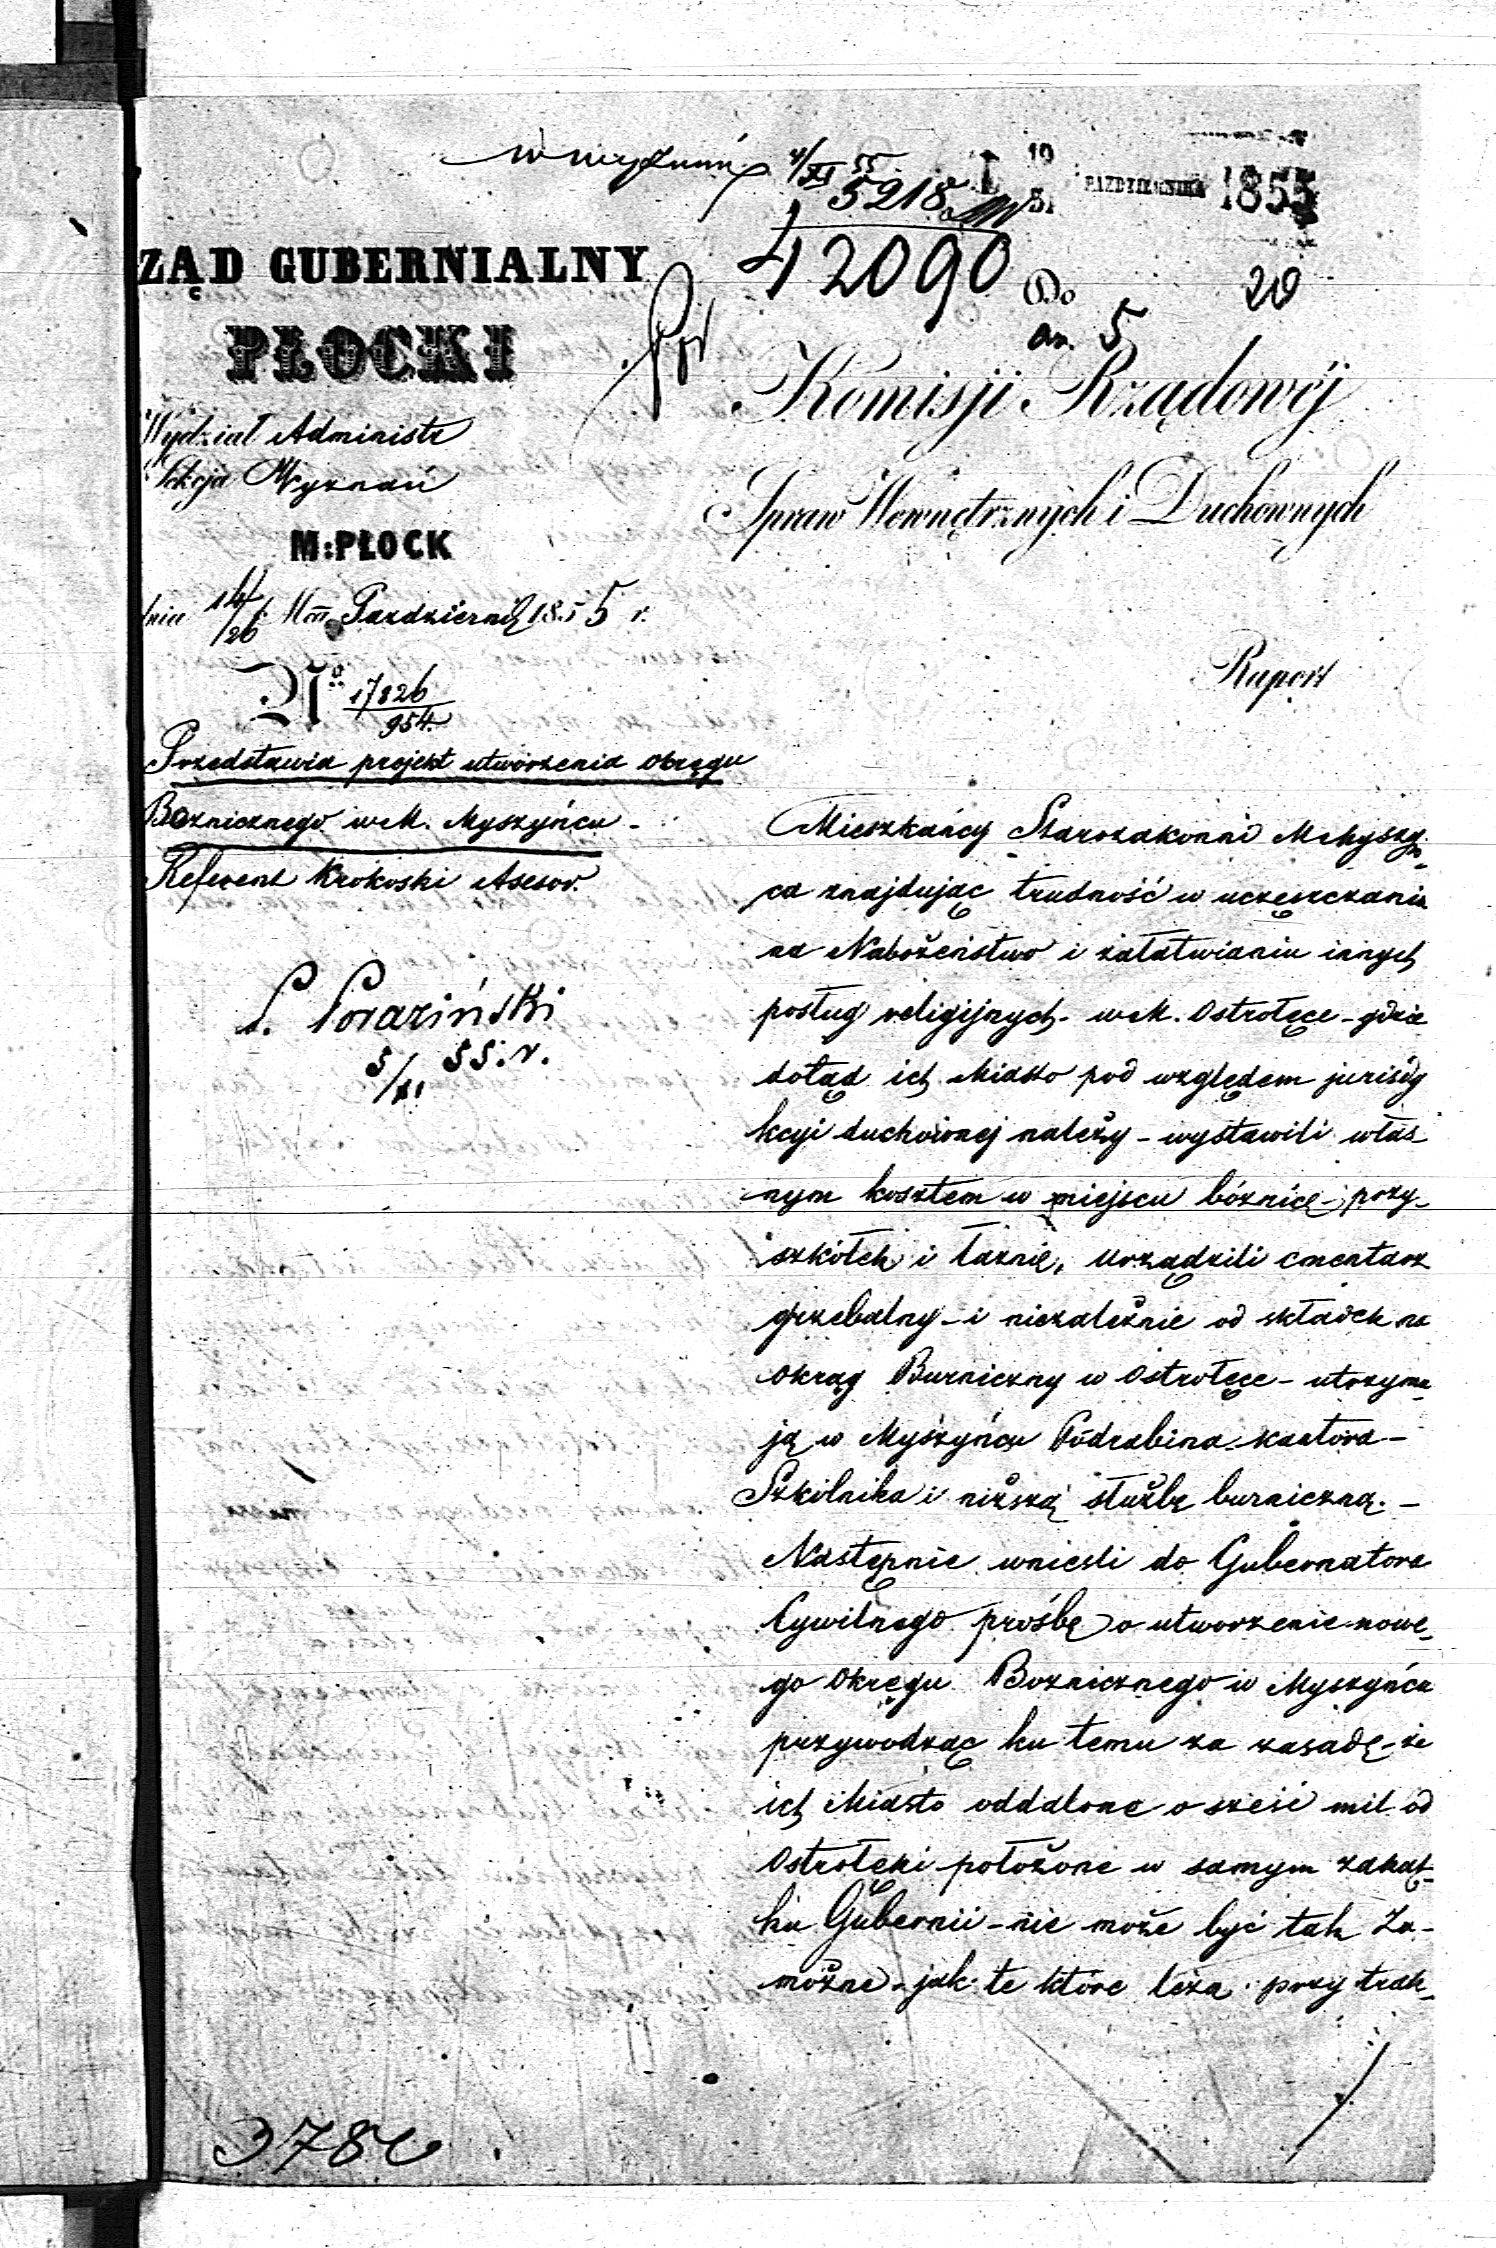 w wyznań 4/XI 55
5218
19
31 PAZDZIERNIKA 1855
42090
ZĄD GUBERNIALNY
PŁOCKI
Do 20
an. 5
Komisji Rządowéj
Spraw Wewnętrznych i Duchownych
Wydział Administr
Sekcja Wyznań
M: PŁOCK
dnia 14/26 Mca Październik 1855 r.
Raport
No 17826/954
Przedstawia projekt utworzenia okręgu
Bożnicznego w M. Myszyńcu -
Referent Krokoski Asesor.
P. Poraziński
5/XI 55. r.
Mieszkańcy Starozakonni M Myszyń-
ca znajdując trudność w uczęszczaniu
na Nabożeństwo i załatwianiu innych
posług religijnych w M. Ostrołęce - gdzie
dotąd ich Miasto pod względem jurisdy
kcyi duchownej należy - wystawili włas-
nym kosztem w miejscu bóżnicę - przy-
szkółek i łaźnię, urządzili cmentarz
grzebalny - i niezależnie od składek na
Okrąg Burniczny w Ostrołęce - utrzymu-
ją w Myszyńcu Podrabina kantora -
Szkolnika i niższą służbę burniczną. -
Następnie wnieśli do Gubernatora
Cywilnego prośbę o utworzenie nowe-
go Okręgu Bożnicznego w Myszyńcu
przywodząc ku temu za zasadę - że
ich Miasto oddalone o sześć mil od
Ostrołęki położone w samym zakąt-
ku Gubernii - nie może być tak Za-
możne - jak te które leżą przy trak-
378